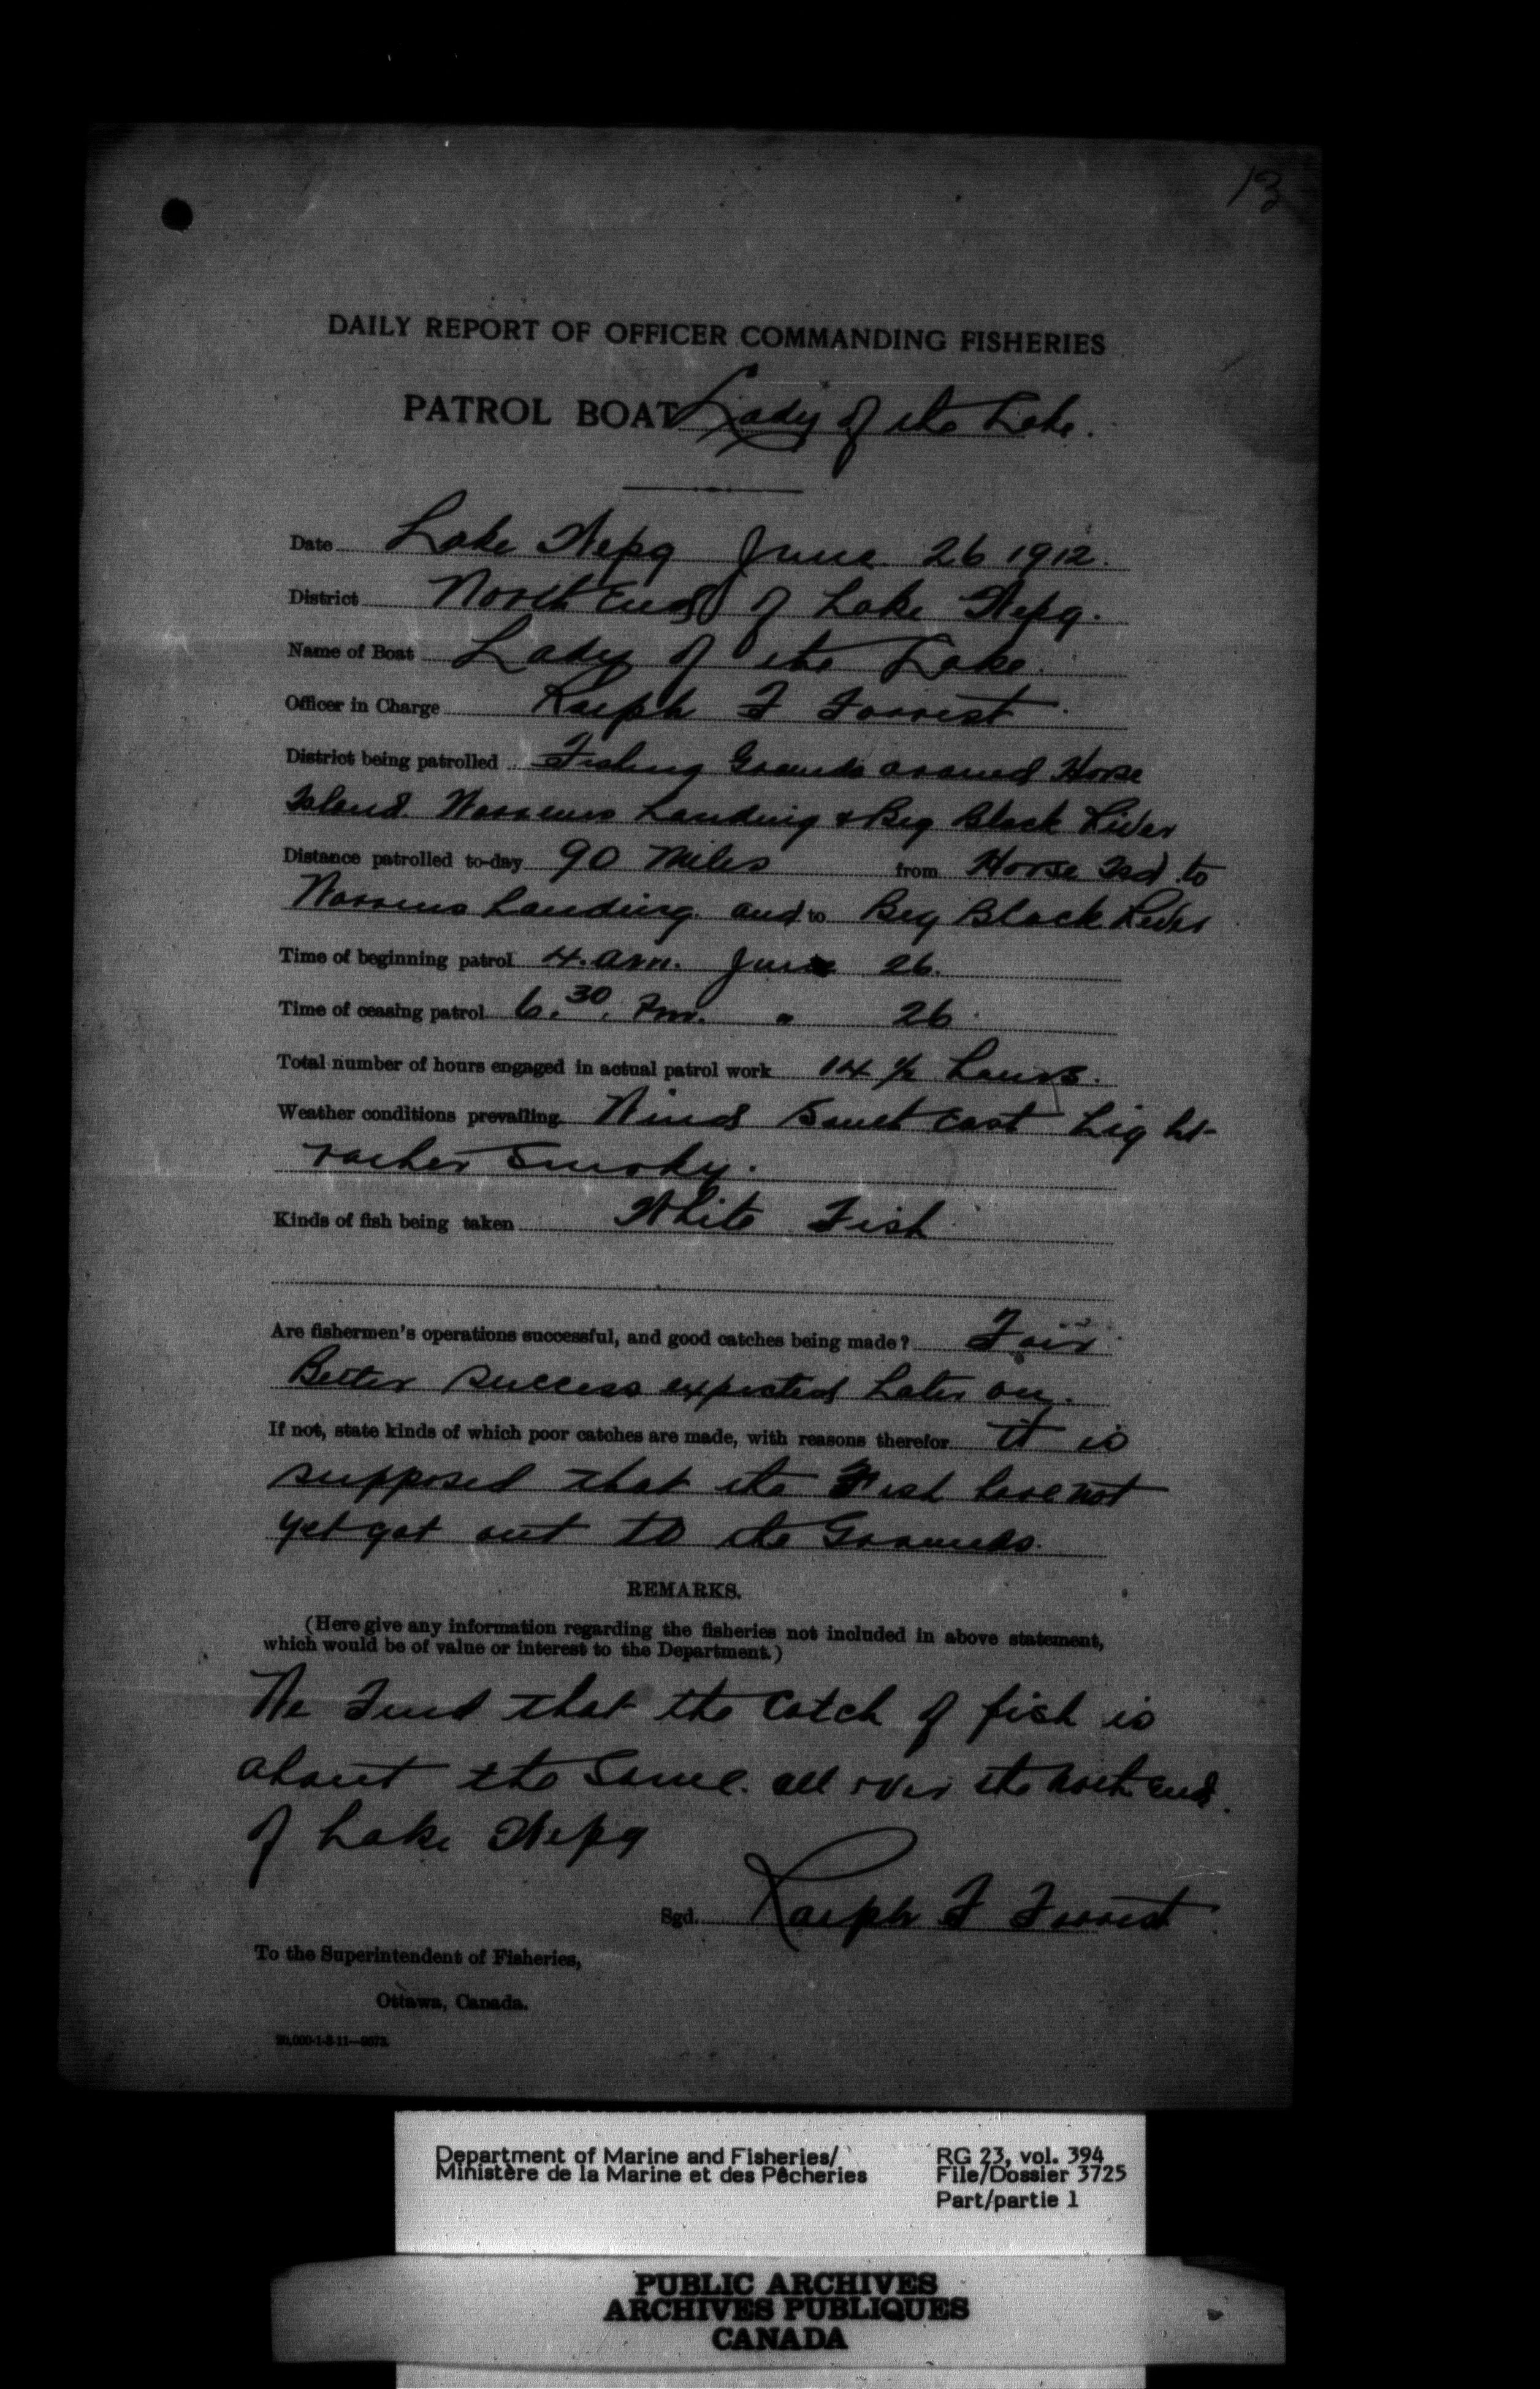 13
DAILY REPORT OF OFFICER COMMANDING FISHERIES
PATROL BOAT Lady of the Lake.
Date Lake Wepg June 26 1912.
District North End of Lake Wepg.
Name of Boat Lady of the Lake.
Officer in Charge Ralph F Forrest
District being patrolled Fishing Grounds around Horse
Island Warrens Landing & Big Black River
Distance patrolled to-day 90 miles from Horse Isd. to
Warrens Landing. and to Big Black River
Time of beginning patrol 4. am. June 26.
Time of ceasing patrol 6.30. Pm. " 26
Total number of hours engaged in actual patrol work 14 1/2 hours.
Weather conditions prevailing Wind South East Light
rather Smoky.
Kinds of fish being taken White Fish
Are fishermen's operations successful, and good catches being made? Fair
Better success expected Later on.
If not, state kinds of which poor catches are made, with reasons therefor It is
supposed that the Fish have not
yet got out to the Grounds.
REMARKS.
(Here give any information regarding the fisheries not included in above statement,
which would be of value or interest to the Department.)
We Find that the Catch of fish is
about the Same. all over the North End.
of Lake Wepg
Sgd. Ralph F Forrest
To the Superintendent of Fisheries,
Ottawa, Canada.
Department of Marine and Fisheries/
Ministère de la Marine et des Pêcheries
RG 23, vol. 394
File/Dossier 3725
Part/partie 1
PUBLIC ARCHIVES
ARCHIVES PUBLIQUES
CANADA